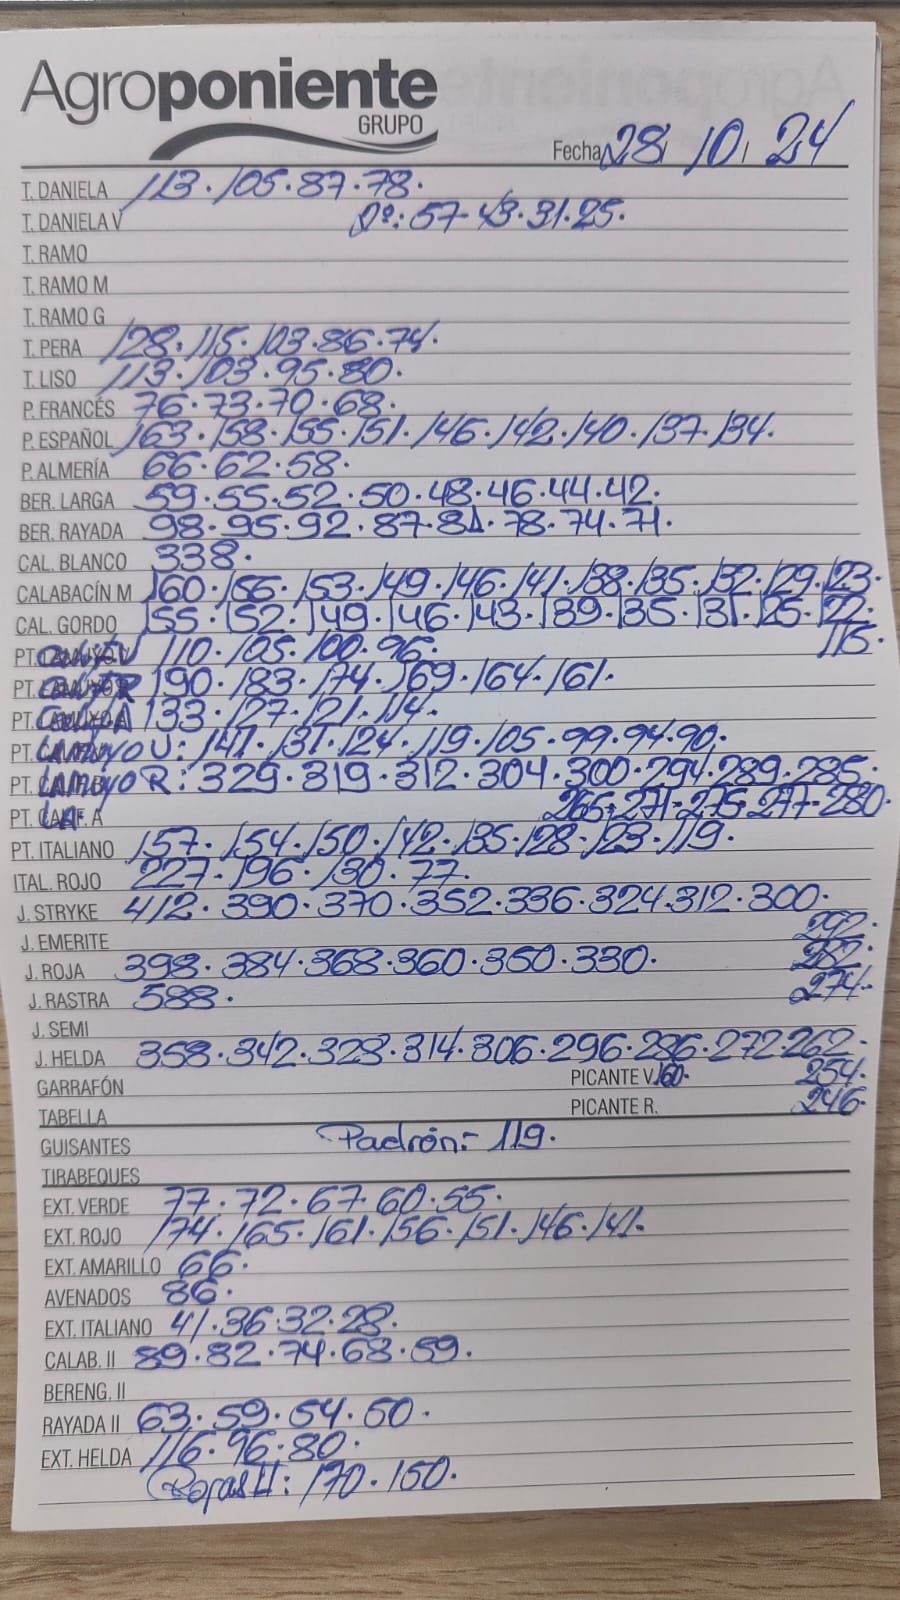 Agroponiente
GRUPO
Fecha 28 / 10 / 24
T. DANIELA 113. 105. 87. 78.
T. DANIELA V 2º: 57- 43. 31. 25.
T. RAMO
T. RAMO M
T. RAMO G
T. PERA 128. 115. 103. 86. 74.
T. LISO 113. 103. 95. 80.
P. FRANCÉS 76. 73. 70. 68.
P. ESPAÑOL 163. 158. 155. 151. 146. 142. 140. 137. 134.
P. ALMERÍA 66. 62. 58.
BER. LARGA 59. 55. 52. 50. 48. 46. 44. 42.
BER. RAYADA 98. 95. 92. 87. 81. 78. 74. 71.
CAL. BLANCO 338.
CALABACÍN M 160. 156. 153. 149. 146. 141. 138. 135. 132. 129. 123.
CAL. GORDO 155. 152. 149. 146. 143. 139. 135. 131. 125. 122.
115.
PT. 110. 105. 100. 96.
PT. 190. 183. 174. 169. 164. 161.
PT. 133. 127. 121. 114.
PT. LAMUYO U: 141. 131. 124. 119. 105. 99. 94. 90.
PT. LAMUYO R: 329. 319. 312. 304. 300. 294. 289. 285.
PT. CALIF. A 265- 271- 275- 277- 280.
PT. ITALIANO 157. 154. 150. 142. 135. 128. 123. 119.
ITAL. ROJO 227. 196. 130. 77.
J. STRYKE 412. 390. 370. 352. 336. 324. 312. 300.
J. EMERITE 292.
J. ROJA 398. 384. 368. 360. 350. 330. 282.
J. RASTRA 588. 274.
J. SEMI
J. HELDA 358. 342. 328. 314. 306. 296. 286. 272. 262.
GARRAFÓN PICANTE V. 160. 254.
TABELLA PICANTE R. 246.
GUISANTES Padrón:- 119.
TIRABEQUES
EXT. VERDE 77. 72. 67. 60. 55.
EXT. ROJO 174. 165. 161. 156. 151. 146. 141.
EXT. AMARILLO 66.
AVENADOS 86.
EXT. ITALIANO 41. 36. 32. 28.
CALAB. II 89. 82. 74. 68. 59.
BERENG. II
RAYADA II 63. 59. 54. 50.
EXT. HELDA 116. 96. 80.
Rojas II: 170. 150.